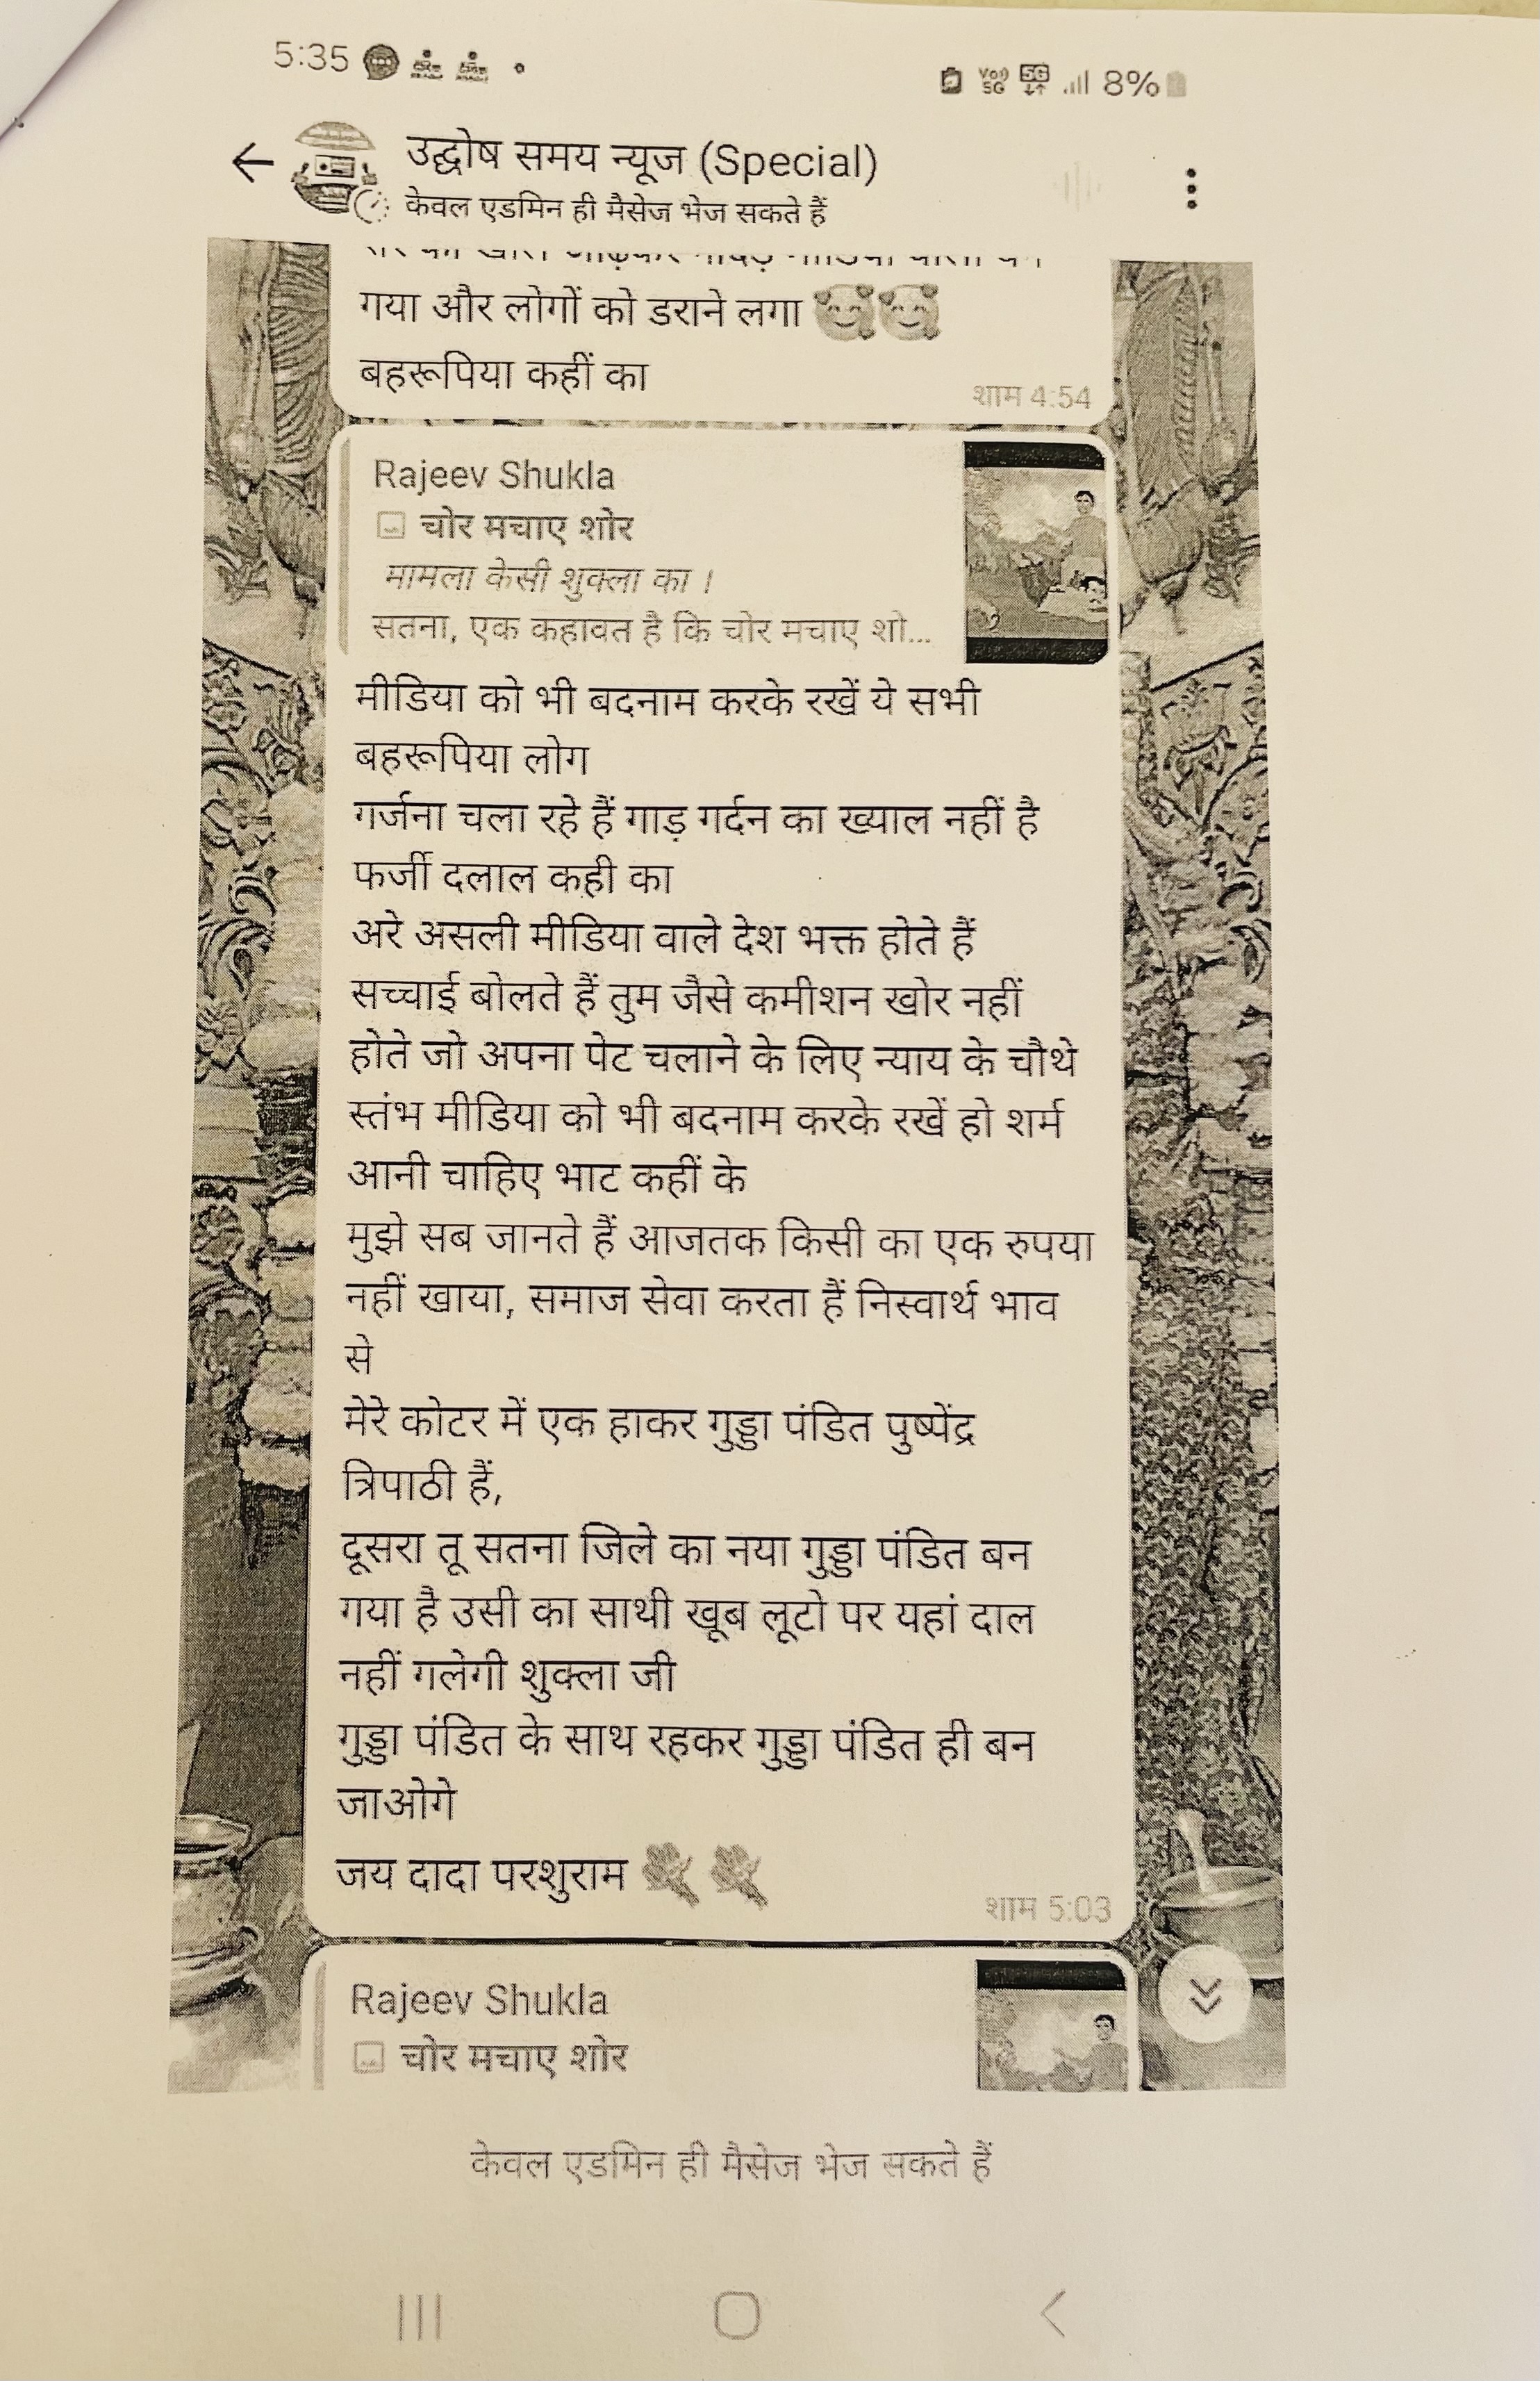 5:35
Vo)) 5G 5G 8%
उद्घोष समय न्यूज (Special)
केवल एडमिन ही मैसेज भेज सकते हैं
गया और लोगों को डराने लगा
बहरूपिया कहीं का
शाम 4:54
Rajeev Shukla
चोर मचाए शोर
मामला केसी शुक्ला का ।
सतना, एक कहावत है कि चोर मचाए शो...
मीडिया को भी बदनाम करके रखें ये सभी
बहरूपिया लोग
गर्जना चला रहे हैं गाड़ गर्दन का ख्याल नहीं है
फर्जी दलाल कही का
अरे असली मीडिया वाले देश भक्त होते हैं
सच्चाई बोलते हैं तुम जैसे कमीशन खोर नहीं
होते जो अपना पेट चलाने के लिए न्याय के चौथे
स्तंभ मीडिया को भी बदनाम करके रखें हो शर्म
आनी चाहिए भाट कहीं के
मुझे सब जानते हैं आजतक किसी का एक रुपया
नहीं खाया, समाज सेवा करता हैं निस्वार्थ भाव
से
मेरे कोटर में एक हाकर गुड्डा पंडित पुष्पेंद्र
त्रिपाठी हैं,
दूसरा तू सतना जिले का नया गुड्डा पंडित बन
गया है उसी का साथी खूब लूटो पर यहां दाल
नहीं गलेगी शुक्ला जी
गुड्डा पंडित के साथ रहकर गुड्डा पंडित ही बन
जाओगे
जय दादा परशुराम
शाम 5:03
Rajeev Shukla
चोर मचाए शोर
केवल एडमिन ही मैसेज भेज सकते हैं